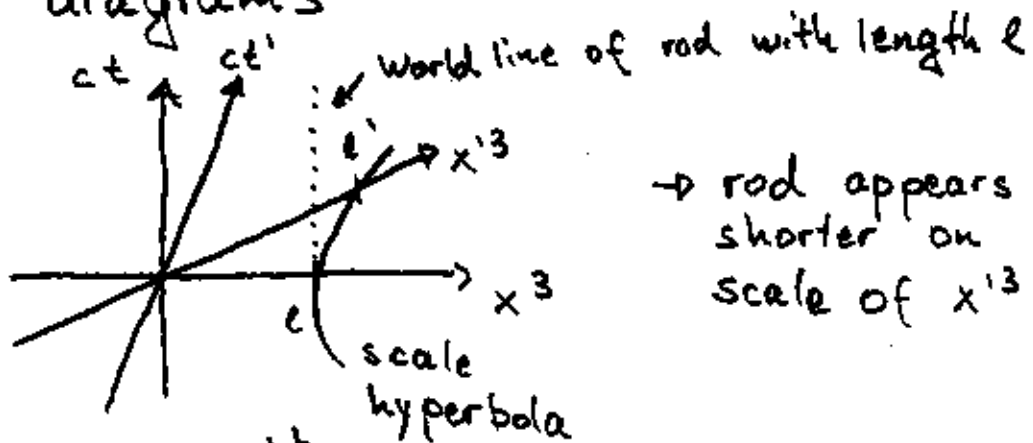 diagrams
ct ct' world line of rod with length l
l' x'³
→ rod appears
shorter on
x³ scale of x'³
l
scale
hyperbola